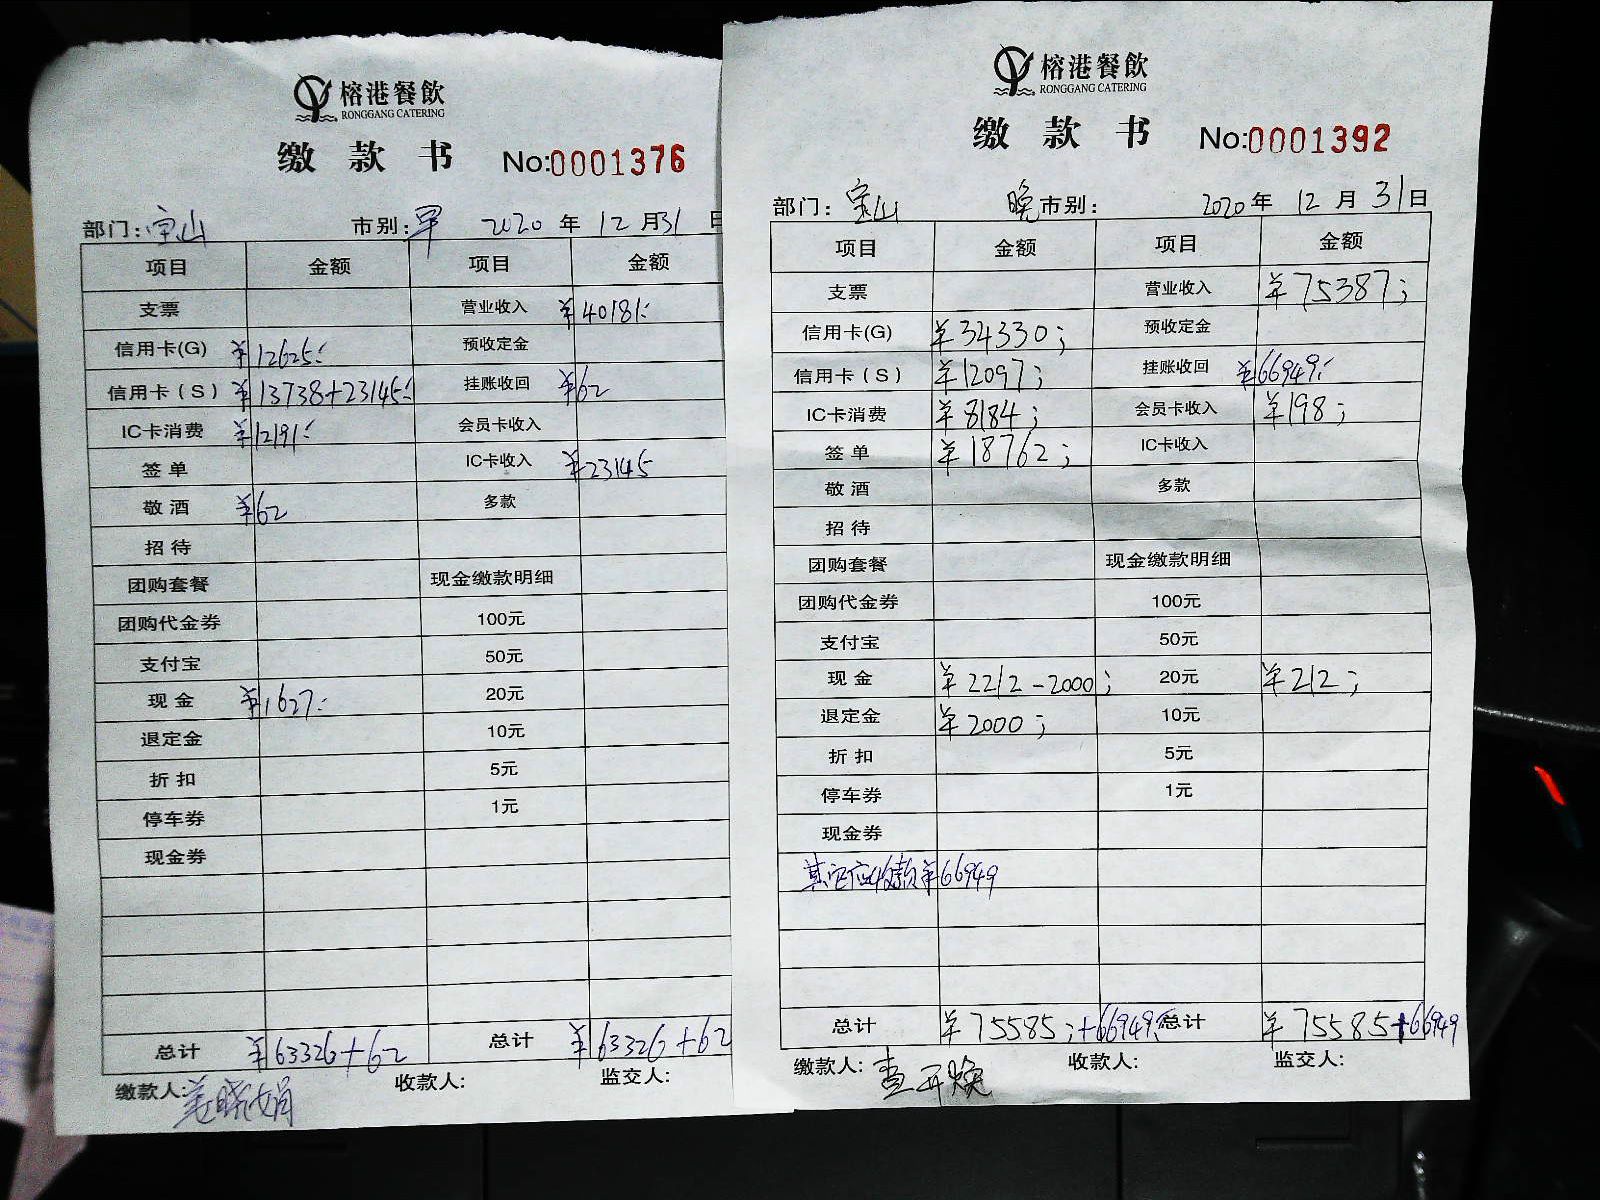 榕港餐飲
RONGGANG CATERING
缴款书 No:0001376
部门: 宝山 市别: 早 2020年12月31日
项目 金额 项目 金额
支票 营业收入 ¥40181:
信用卡(G) ¥12625: 预收定金
信用卡(S) ¥13738+23145: 挂账收回 ¥62
IC卡消费 ¥12191: 会员卡收入
签单 IC卡收入 ¥23145
敬酒 ¥62 多款
招待
团购套餐 现金缴款明细
团购代金券 100元
支付宝 50元
现金 ¥1627: 20元
退定金 10元
折扣 5元
停车券 1元
现金券
总计 ¥63326+62 总计 ¥63326+62
缴款人: 姜晓娟 收款人: 监交人:
榕港餐飲
RONGGANG CATERING
缴款书 No:0001392
部门: 宝山 晚市别: 2020年12月31日
项目 金额 项目 金额
支票 营业收入 ¥75387;
信用卡(G) ¥34330; 预收定金
信用卡(S) ¥12097; 挂账收回 ¥66949:
IC卡消费 ¥8184; 会员卡收入 ¥198;
签单 ¥18762; IC卡收入
敬酒 多款
招待
团购套餐 现金缴款明细
团购代金券 100元
支付宝 50元
现金 ¥2212-2000; 20元 ¥212;
退定金 ¥2000; 10元
折扣 5元
停车券 1元
现金券
其它应收款 ¥66949
总计 ¥75585;+66949: 总计 ¥75585+66949
缴款人: 收款人: 监交人: